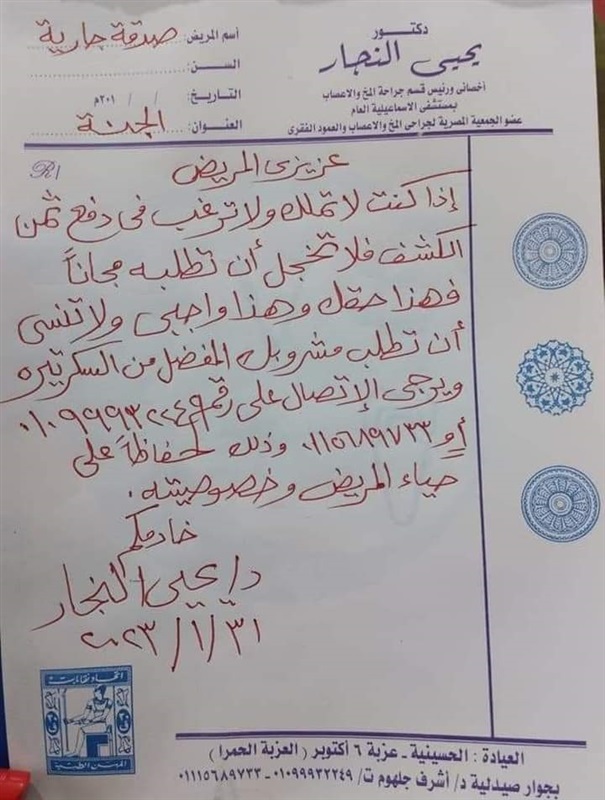 دكتور
يحيى النجار
أخصائى ورئيس قسم جراحة المخ والاعصاب
بمستشفى الاسماعيلية العام
عضو الجمعية المصرية لجراحى المخ والاعصاب والعمود الفقرى
أسم المريض: صدقة جارية
السن:
التاريخ: / / ٢٠١م
العنوان: الجنة
R/
عزيزى المريض
إذا كنت لا تملك ولا ترغب فى دفع ثمن
الكشف فلا تخجل أن تطلبه مجاناً
فهذا حقك وهذا واجبى ولا تنسى
أن تطلب مشروبك المفضل من السكرتيره
ويرجى الإتصال على رقم ٠١٠٩٩٩٣٢٢٤٩
أو ٠١١١٥٦٨٩٧٣٣ وذلك لحفاظاً على
حياء المريض وخصوصيته.
خادمكم
د/ يحيى النجار
٢٠٢٣/١/٣١
اتحاد نقابات
المهن الطبية
العيادة : الحسينية - عزبة ٦ أكتوبر ( العزبة الحمرا )
بجوار صيدلية د/ أشرف جلهوم ت/ ٠١٠٩٩٩٣٢٢٤٩ - ٠١١١٥٦٨٩٧٣٣